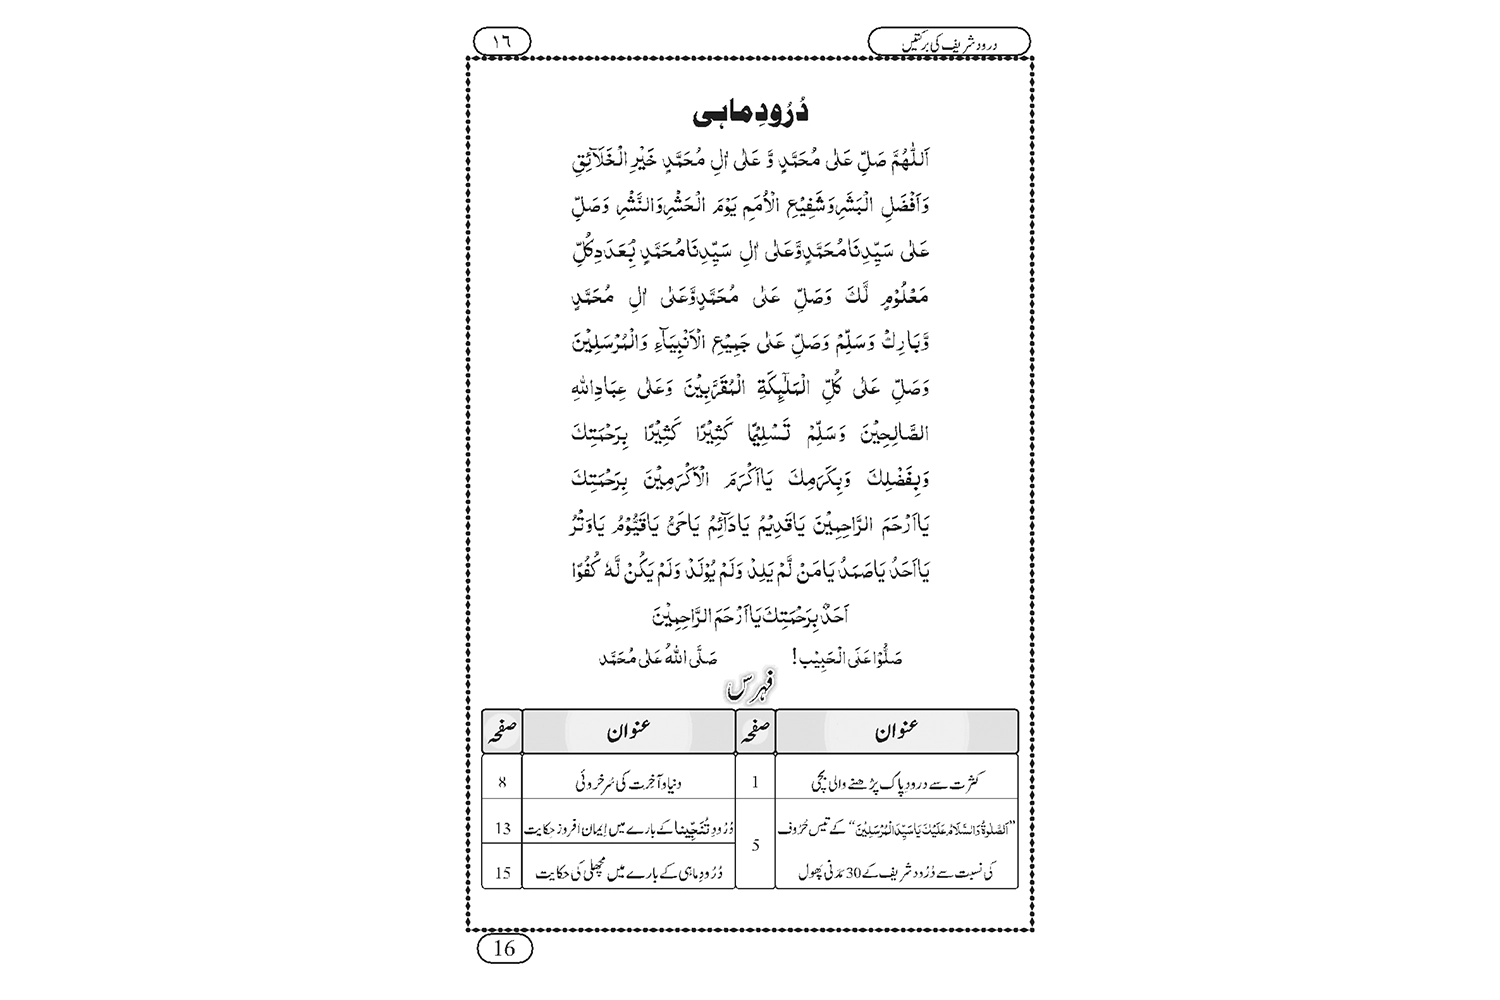 درود شریف کی برکتیں
١٦
دُرُودِ ماہی
اَللّٰهُمَّ صَلِّ عَلٰی مُحَمَّدٍ وَّ عَلٰی اٰلِ مُحَمَّدٍ خَیْرِ الْخَلَآئِقِ
وَاَفْضَلِ الْبَشَرِ وَشَفِیْعِ الْاُمَمِ یَوْمَ الْحَشْرِ وَالنَّشْرِ وَصَلِّ
عَلٰی سَیِّدِنَا مُحَمَّدٍ وَّعَلٰی اٰلِ سَیِّدِنَا مُحَمَّدٍ بِۢعَدَدِ کُلِّ
مَعْلُوْمٍ لَّكَ وَصَلِّ عَلٰی مُحَمَّدٍ وَّعَلٰی اٰلِ مُحَمَّدٍ
وَّبَارِكْ وَسَلِّمْ وَصَلِّ عَلٰی جَمِیْعِ الْاَنْبِیَآءِ وَالْمُرْسَلِیْنَ
وَصَلِّ عَلٰی کُلِّ الْمَلٰٓئِکَةِ الْمُقَرَّبِیْنَ وَعَلٰی عِبَادِ اللّٰهِ
الصَّالِحِیْنَ وَسَلِّمْ تَسْلِیْمًا کَثِیْرًا کَثِیْرًا بِرَحْمَتِكَ
وَبِفَضْلِكَ وَبِکَرَمِكَ یَا اَکْرَمَ الْاَکْرَمِیْنَ بِرَحْمَتِكَ
یَا اَرْحَمَ الرَّاحِمِیْنَ یَا قَدِیْمُ یَا دَآئِمُ یَا حَیُّ یَا قَیُّوْمُ یَا وِتْرُ
یَا اَحَدُ یَا صَمَدُ یَا مَنْ لَّمْ یَلِدْ وَلَمْ یُوْلَدْ وَلَمْ یَکُنْ لَّهٗ کُفُوًا
اَحَدٌۢ بِرَحْمَتِكَ یَا اَرْحَمَ الرَّاحِمِیْنَ
صَلُّوْا عَلَی الْحَبِیْب! صَلَّی اللّٰهُ عَلٰی مُحَمَّد
فہرس
عنوان صفحہ عنوان صفحہ
کثرت سے درودِ پاک پڑھنے والی بچی 1 دنیا و آخِرت کی سُرخروئی 8
”اَلصَّلٰوةُ وَالسَّلَامُ عَلَیْكَ یَا سَیِّدَ الْمُرْسَلِیْنَ“ کے تیس حُرُوف 5 دُرُودِ تُنَجِّینا کے بارے میں اِیمان افروز حِکایت 13
کی نسبت سے دُرُود شریف کے 30 مَدَنی پھول دُرُودِ ماہی کے بارے میں مچھلی کی حکایت 15
16